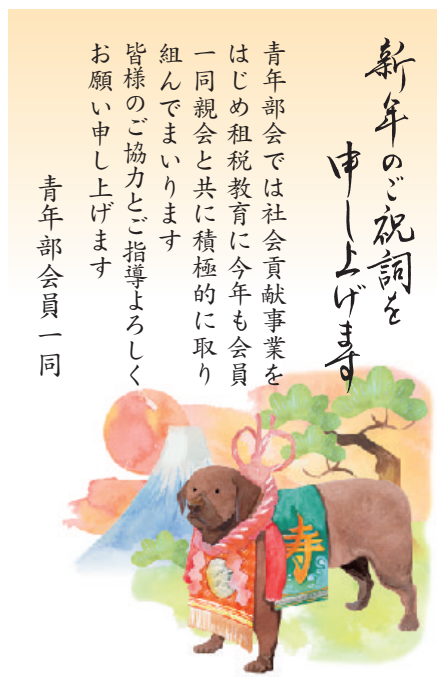 新年のご祝詞を
申し上げます
青年部会では社会貢献事業を
はじめ租税教育に今年も会員
一同親会と共に積極的に取り
組んでまいります
皆様のご協力とご指導よろしく
お願い申し上げます
青年部会員一同
寿